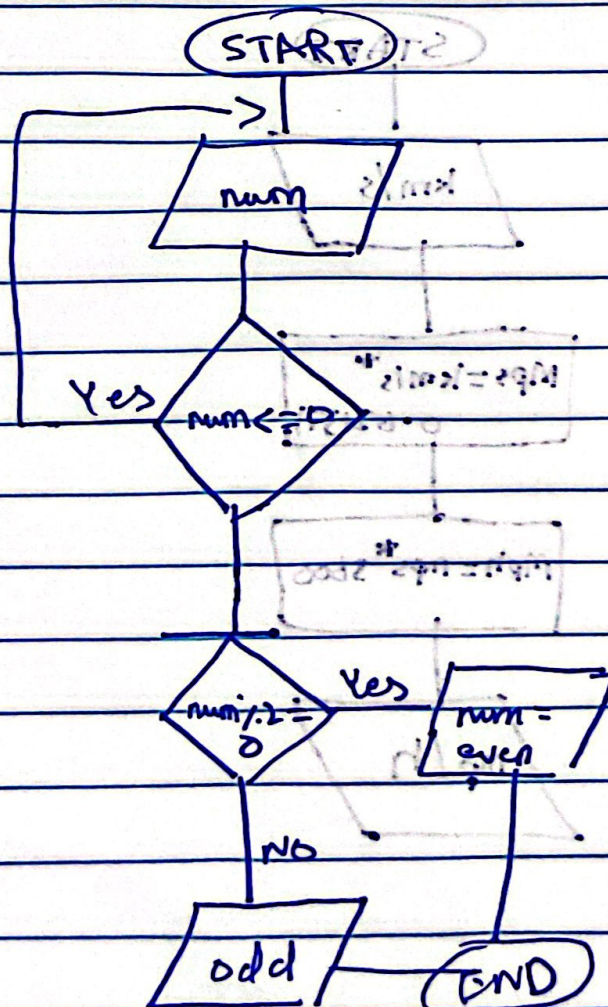 START
num
Yes
num<=0
Yes
num%2=
0
num=
even
NO
odd
END